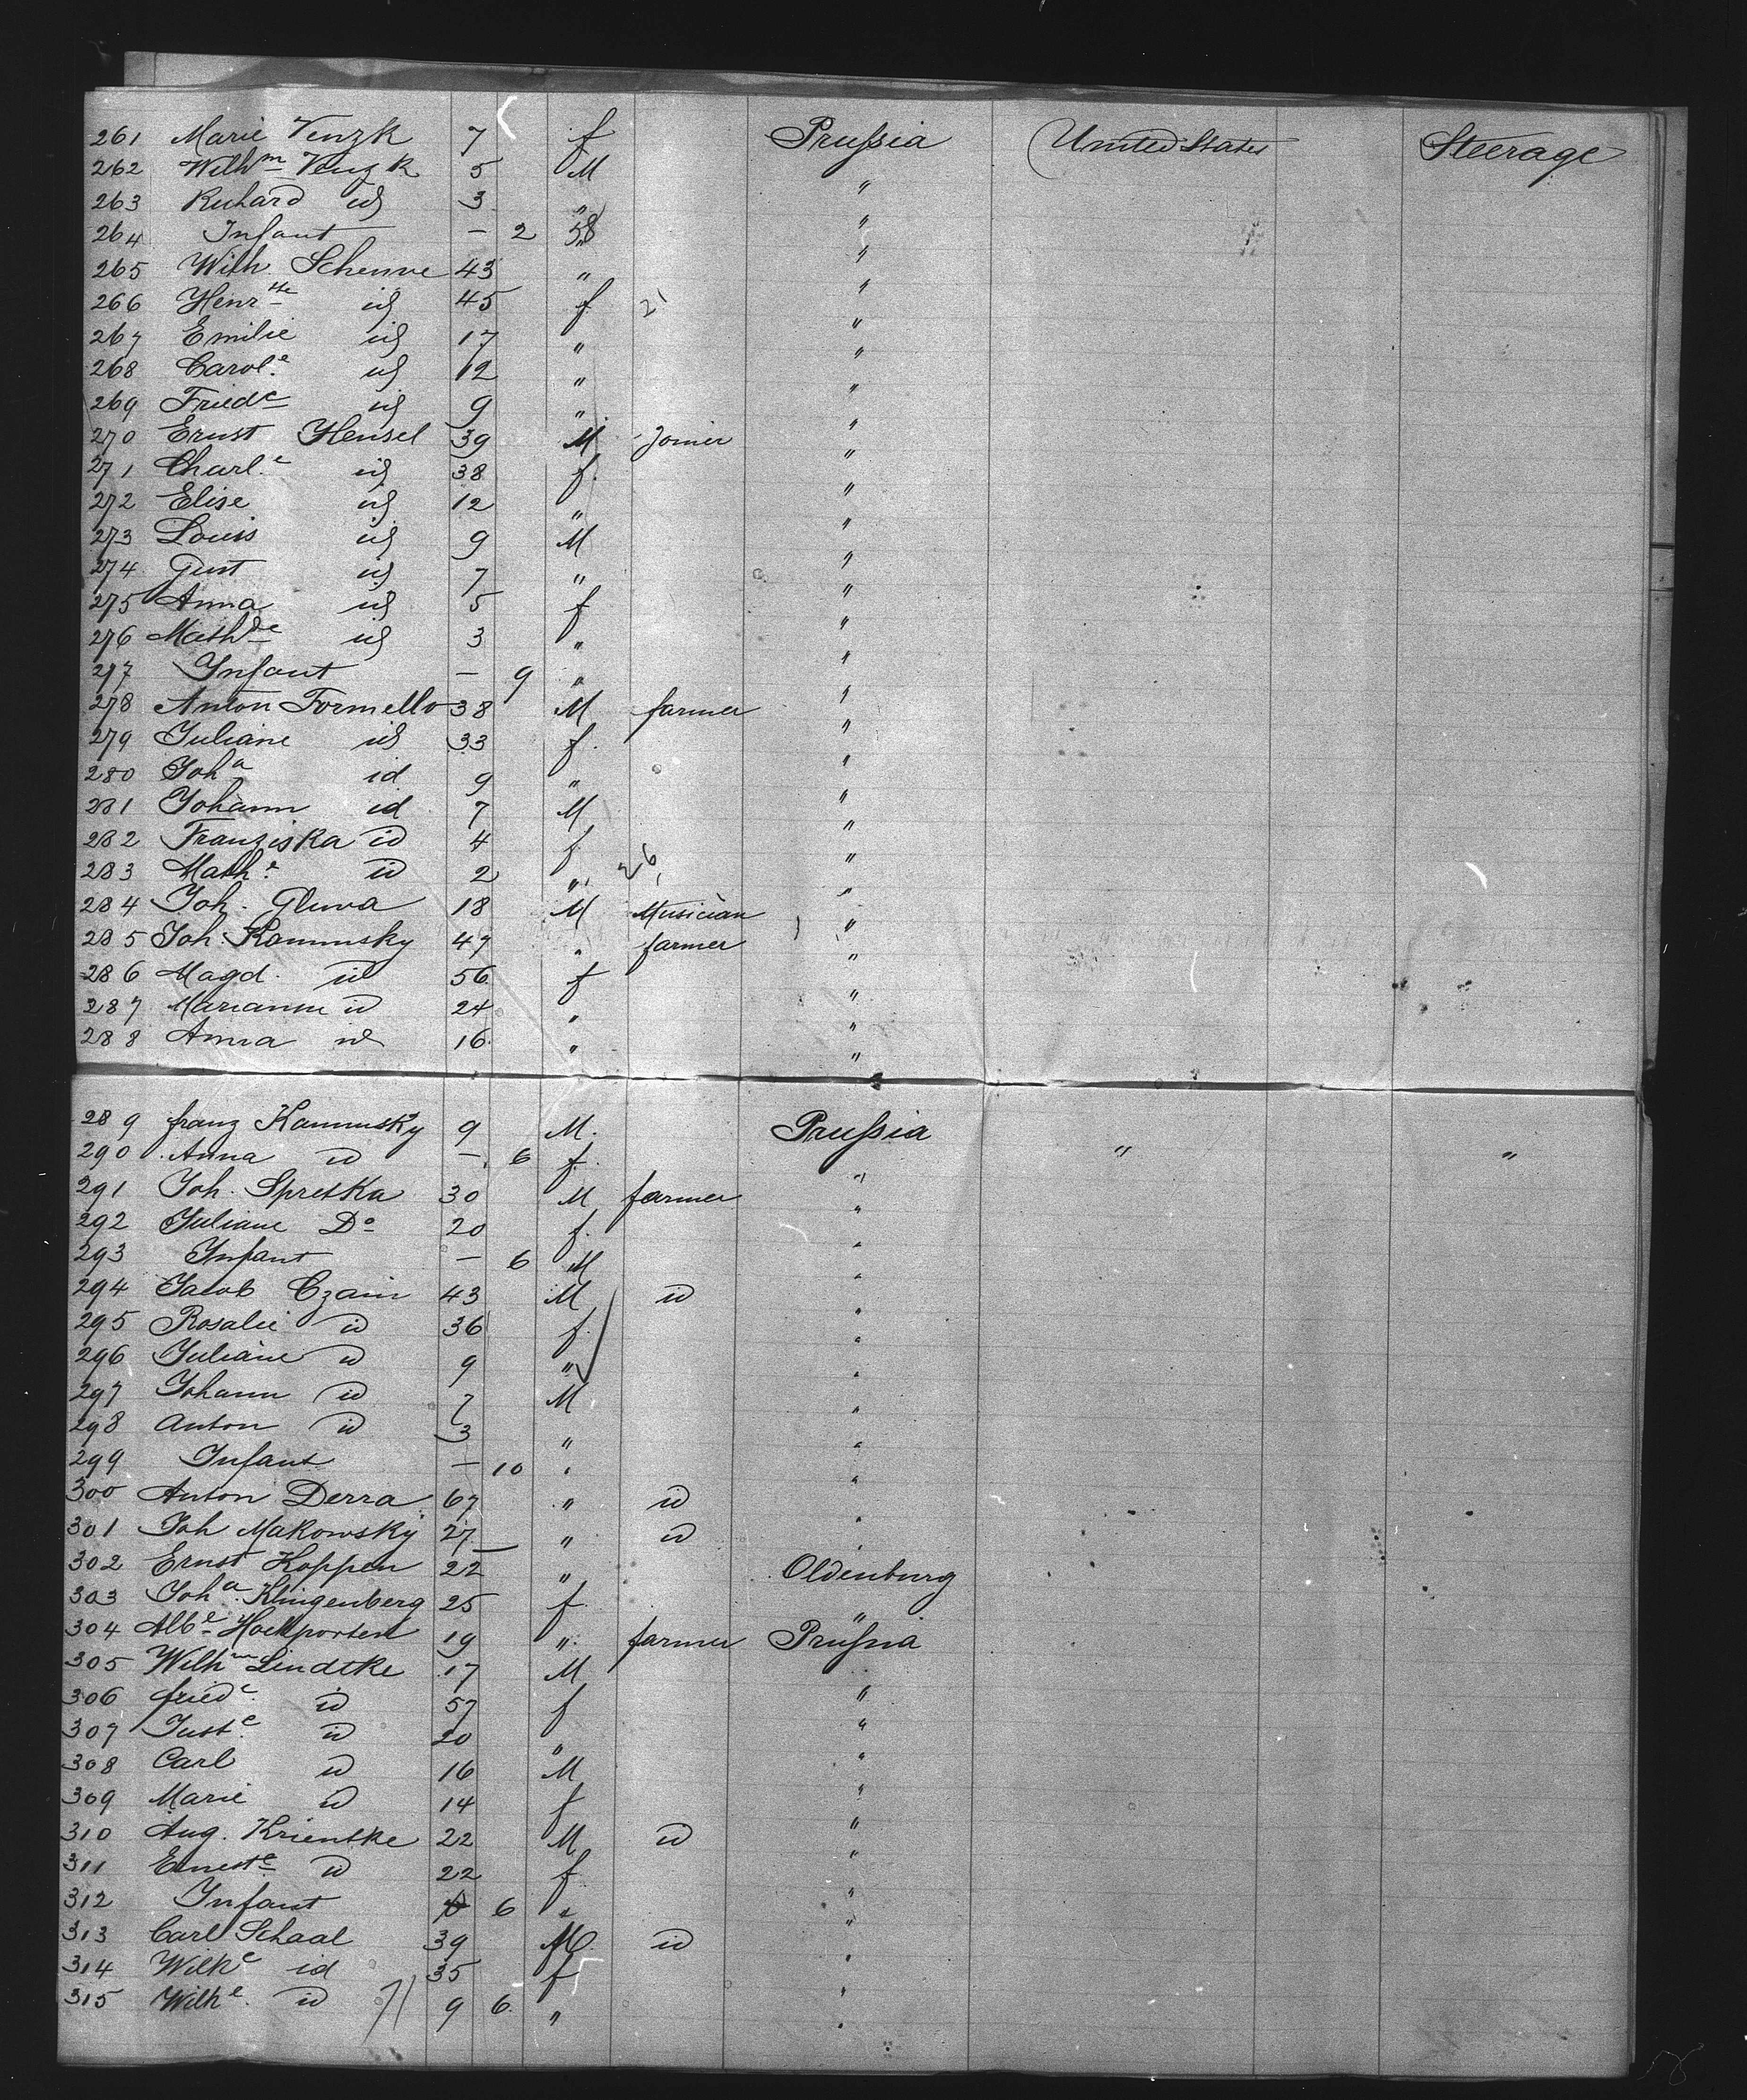 261 Marie Venzk 7 f Prussia United States Steerage
262 Wilhm Venzk 5 M "
263 Richard id 3 " "
264 Infant — 2 "
265 Wilh. Schenve 43 " "
266 Henrtte id 45 f 21 "
267 Emilie id 17 " "
268 Carole id 12 " "
269 Friede id 9 " "
270 Ernst Hensel 39 M Joiner "
271 Charle id 38 f. "
272 Elise id 12 " "
273 Louis id 9 M "
274 Gust id 7 " "
275 Anna id 5 f "
276 Mathde id 3 " "
277 Infant — 9 " "
278 Anton Formello 38 M farmer "
279 Juliane id 33 f. "
280 Joha id 9 " "
281 Johann id 7 M "
282 Franziska id 4 f "
283 Mathe id 2 " 26 "
284 Joh. Gluva 18 M Musician "
285 Joh. Kamunsky 47 " farmer "
286 Magd. id 56 f "
287 Marianne id 24 " "
288 Anna id 16 " "
289 franz Kamunsky 9 M. Prussia " "
290 Anna id — 6 f. "
291 Joh. Spretka 30 M farmer "
292 Juliane Do 20 f. "
293 Infant — 6 M "
294 Jacob Czain 43 M id "
295 Rosalie id 36 f. "
296 Juliane id 9 " "
297 Johann id 7 M "
298 Anton id 3 " "
299 Infant — 10 " "
300 Anton Derra 67 " id "
301 Joh Makowsky 27 " id "
302 Ernst Hoppen 22 " Oldenburg
303 Joha. Klingenberg 25 f. "
304 Albe 19 " farmer Prussia
305 Wilhm Lindtke 17 M "
306 friede id 57 f "
307 Juste id 20 " "
308 Carl id 16 M "
309 Marie id 14 f "
310 Aug. Krientke 22 M id "
311 Erneste id 22 f "
312 Infant 6 " "
313 Carl Schaal 39 M id "
314 Wilhe id 35 f "
315 Wilhe. id 71 9 6. " "